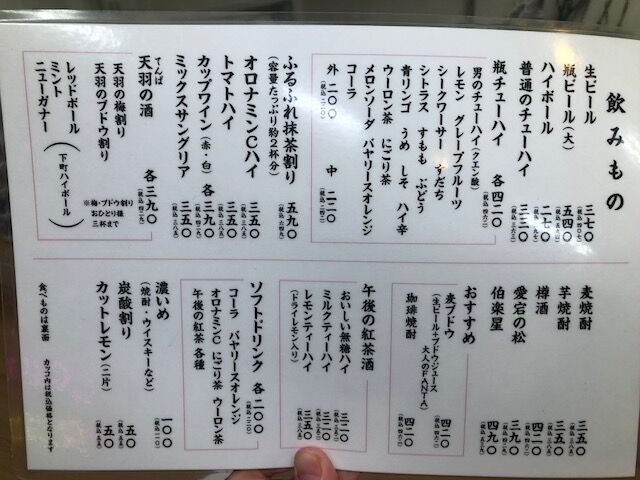 飲みもの
生ビール 三七〇(税込 四〇七)
瓶ビール(大) 五四〇(税込 五九四)
ハイボール 二七〇(税込 二九七)
普通のチューハイ 三三〇(税込 三六三)
瓶チューハイ 各 四二〇(税込 四六二)
男のチューハイ(クエン酸)
レモン グレープフルーツ
シークワーサー すだち
シトラス すもも ぶどう
青リンゴ うめ しそ ハイ辛
ウーロン茶 にごり茶
メロンソーダ バヤリースオレンジ
コーラ
外 二〇〇(税込 二二〇) 中 二二〇(税込 二四二)
ふるふれ抹茶割り 五九〇
(容量たっぷり約2杯分)(税込 六四九)
オロナミンCハイ 三五〇(税込 三八五)
トマトハイ 三五〇(税込 三八五)
カップワイン(赤・白) 各 三九〇(税込 四二九)
ミックスサングリア 三五〇(税込 三八五)
てんば
天羽の酒 各 三九〇(税込 四二九)
天羽の梅割り
天羽のブドウ割り
※梅・ブドウ割り
おひとり様
三杯まで
レッドボール
ミント
ニューガナー
(下町ハイボール)
麦焼酎 三五〇(税込 三八五)
芋焼酎 三五〇(税込 三八五)
樽酒 四二〇(税込 四六二)
愛宕の松 三九〇(税込 四二九)
伯楽星 四九〇(税込 五三九)
おすすめ
麦ブドウ 四二〇(税込 四六二)
(生ビール+ブドウジュース
大人のFANTA)
珈琲焼酎 四二〇(税込 四六二)
午後の紅茶酒
おいしい無糖ハイ 三二〇
ミルクティーハイ 三二〇
レモンティーハイ 三五〇
(ドライレモン入り)
ソフトドリンク 各 二〇〇(税込 二二〇)
コーラ バヤリースオレンジ
オロナミンC にごり茶 ウーロン茶
午後の紅茶 各種
濃いめ 一〇〇
(焼酎・ウイスキーなど)(税込 一一〇)
炭酸割り 五〇(税込 五五)
カットレモン(二片) 五〇(税込 五五)
食べものは裏面
カッコ内は税込価格となります